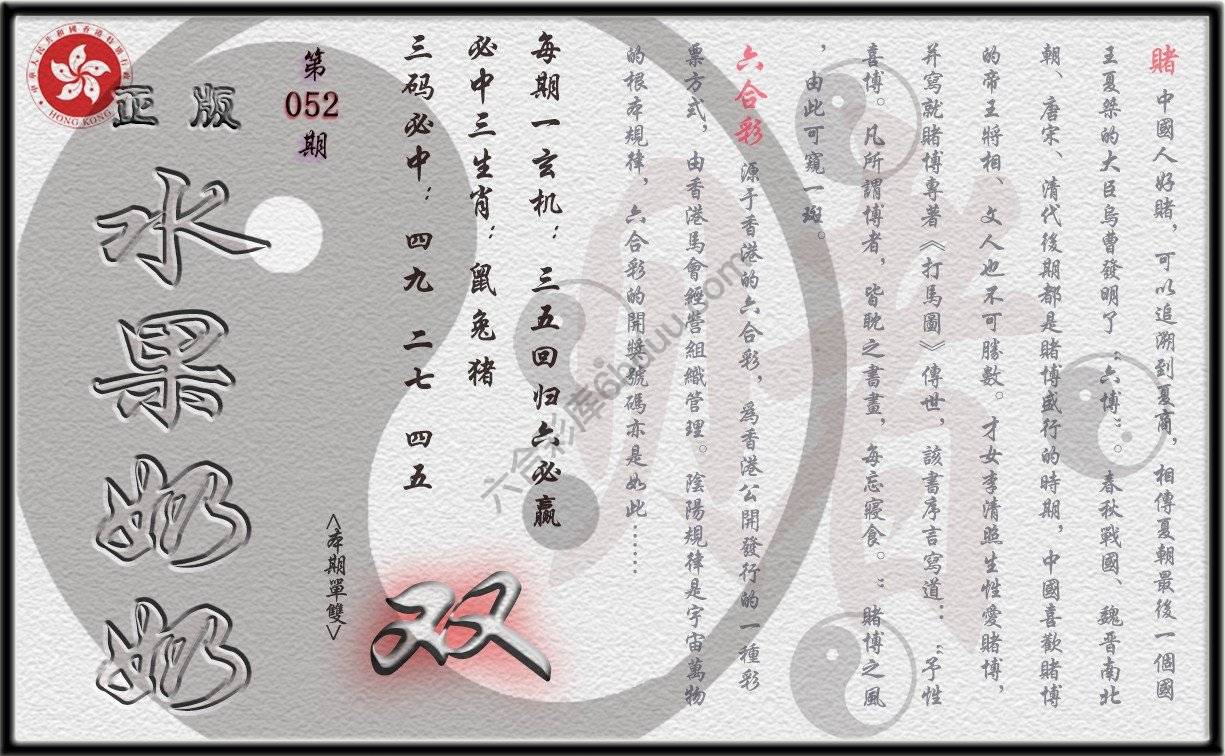 賭 中國人好賭，可以追溯到夏商，相傳夏朝最後一個國
王夏桀的大臣烏曹發明了“六博”。春秋戰國、魏晋南北
朝、唐宋、清代後期都是賭博盛行的時期，中國喜歡賭博
的帝王將相、文人也不可勝數。才女李清照生性愛賭博，
并寫就賭博專著《打馬圖》傳世，該書序言寫道：“予性
喜博。凡所謂博者，皆耽之書畫，每忘寢食。”賭博之風
，由此可窺一斑。
六合彩 源于香港的六合彩，為香港公開發行的一種彩
票方式，由香港馬會經營組織管理。陰陽規律是宇宙萬物
的根本規律，六合彩的開獎號碼亦是如此……
每期一玄机：三五回归六必赢
必中三生肖：鼠兔猪
三码必中：四九 二七 四五
<本期單雙>
双
第
052
期
正版
水果奶奶
HONG KONG
六合彩库6huuu.com